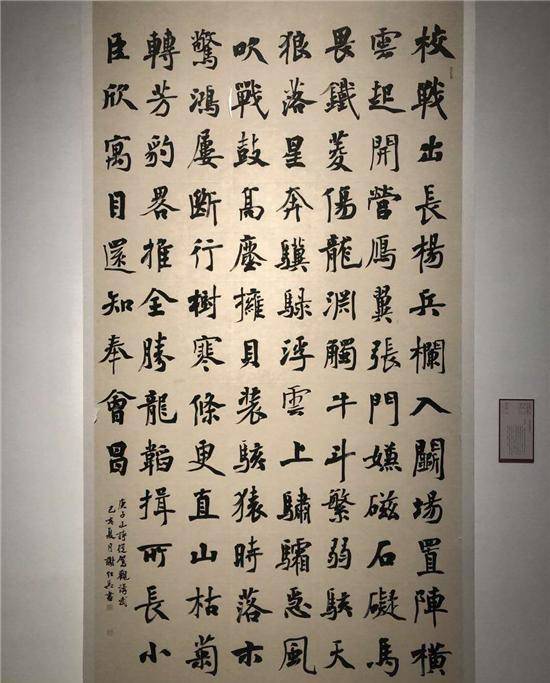 校戰出長楊兵欄入鬭場置陣橫
雲起開營鴈翼張門嫌磁石礙馬
畏鐵菱傷龍淵觸牛斗繁弱駭天
狼落星奔驥騄浮雲上驌驦急風
吹戰鼓高塵擁貝裝駭猿時落木
驚鴻屢斷行樹寒條更直山枯菊
轉芳豹畧推全勝龍韜揖所長小
臣欣寓目還知奉會昌
庾子山詩從駕觀講武
己亥夏月謝